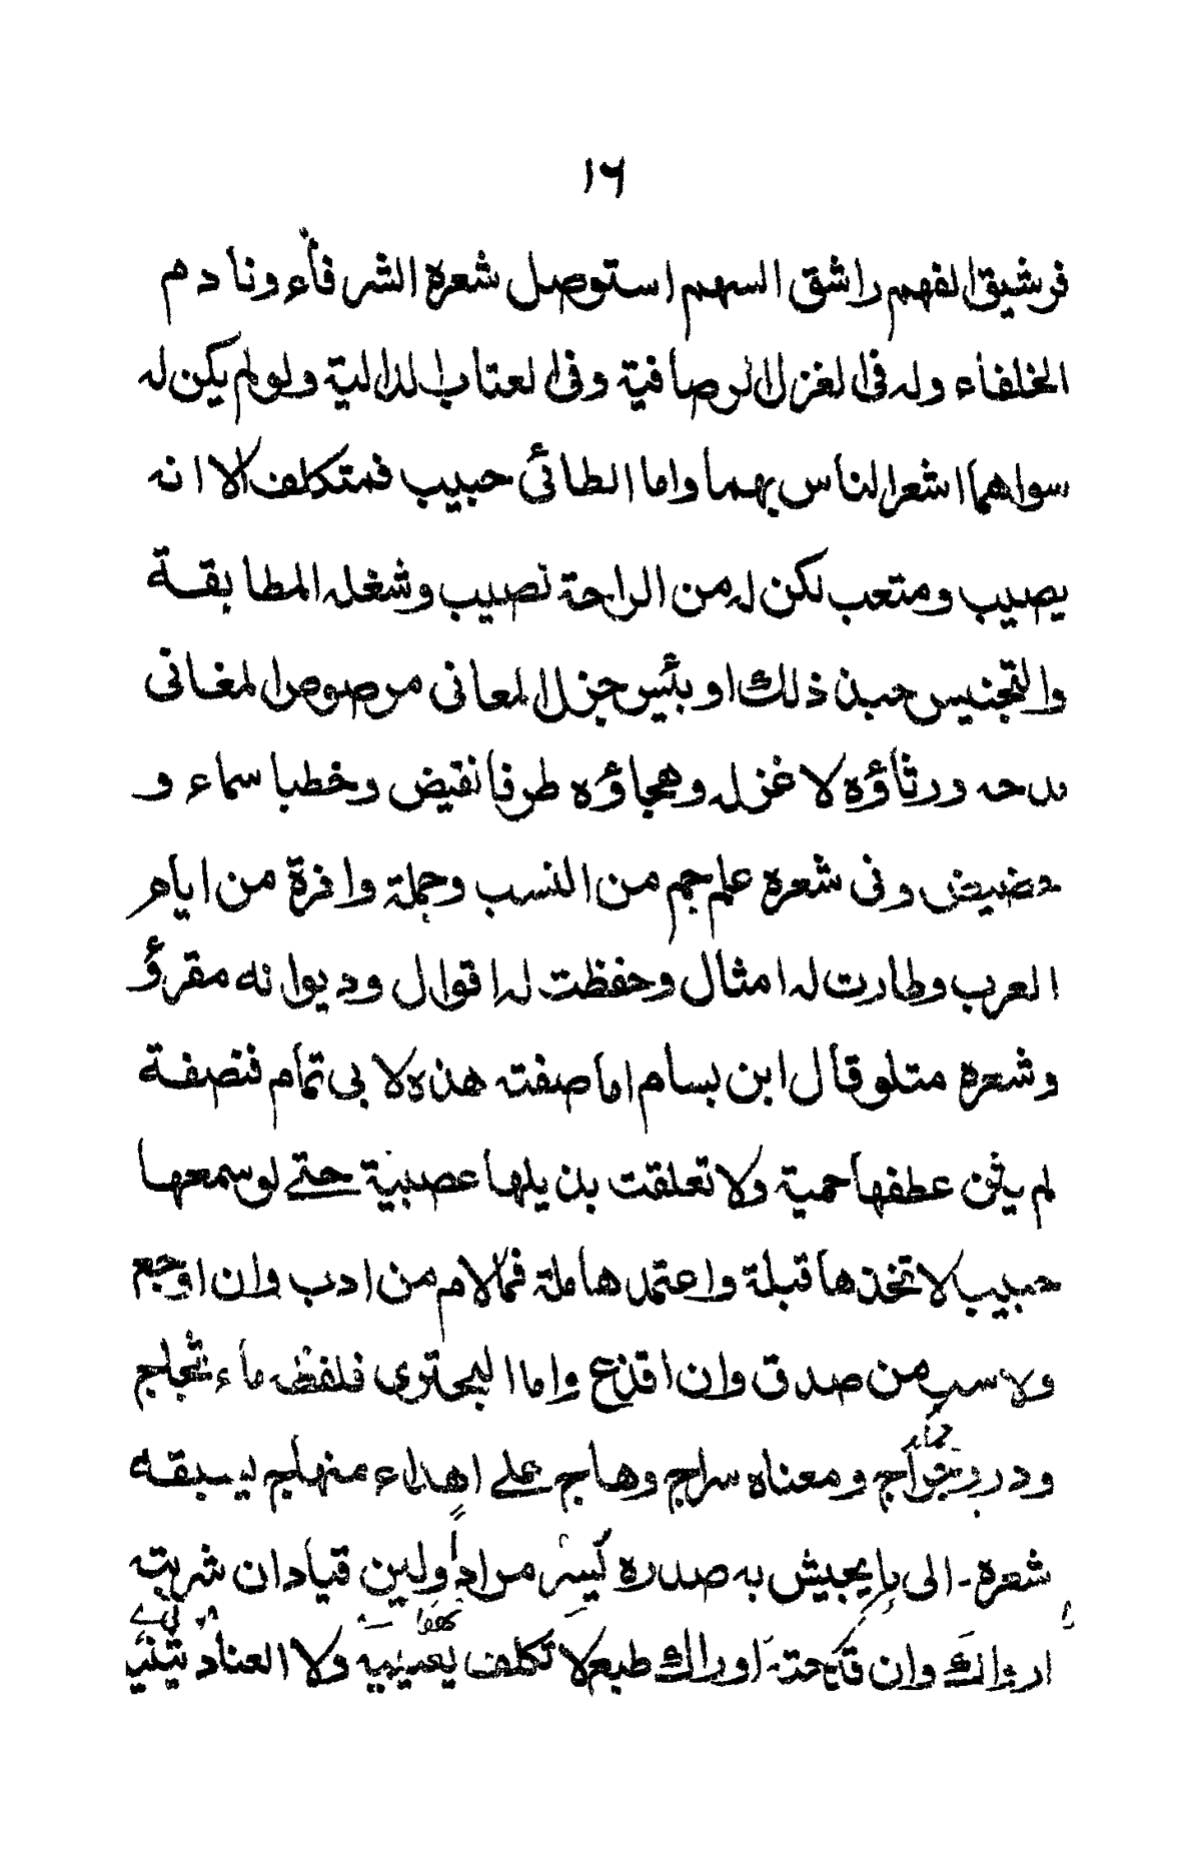 ١٦
فرشيق الفهم راشق السهم استوصل شعره الشرفاء ونادم
الخلفاء وله فى الغزل الرصافية وفى العتاب الدالية ولو لم يكن له
سواهما اشعر الناس بهما واما الطائى حبيب فمتكلف الا انه
يصيب ومتعب لكن له من الراحة نصيب وشغله المطابقة
والتجنيس حبذ ذلك او بئيس جزل المعانى مرصوص المغانى
مدحه ورثاؤه لا غزله وهجاؤه طرفا نقيض وخطبا سماء و
حضيض وفى شعره علم جم من النسب وجملة وافرة من ايام
العرب وطارت له امثال وحفظت له اقوال وديوانه مقرؤ
وشعره متلو قال ابن بسام اما صفته هذه لابى تمام فنصفة
لم يثن عطفها حمية ولا تعلقت بذيلها عصبية حتى لو سمعها
حبيب لاتخذها قبلة واعتمدها ملة فما لام من ادب وان اوجع
ولا سب من صدق وان اقذع واما البحترى فلفظه ماء ثجاج
ودر رجراج ومعناه سراج وهاج على اهداء منهاج يسبقه
شعره - الى ما يجيش به صدره يسر مراد ولين قياد ان شربته
ارواك وان قدحته اوراك طبع لا تكلف يعييه ولا العناد يثنيه